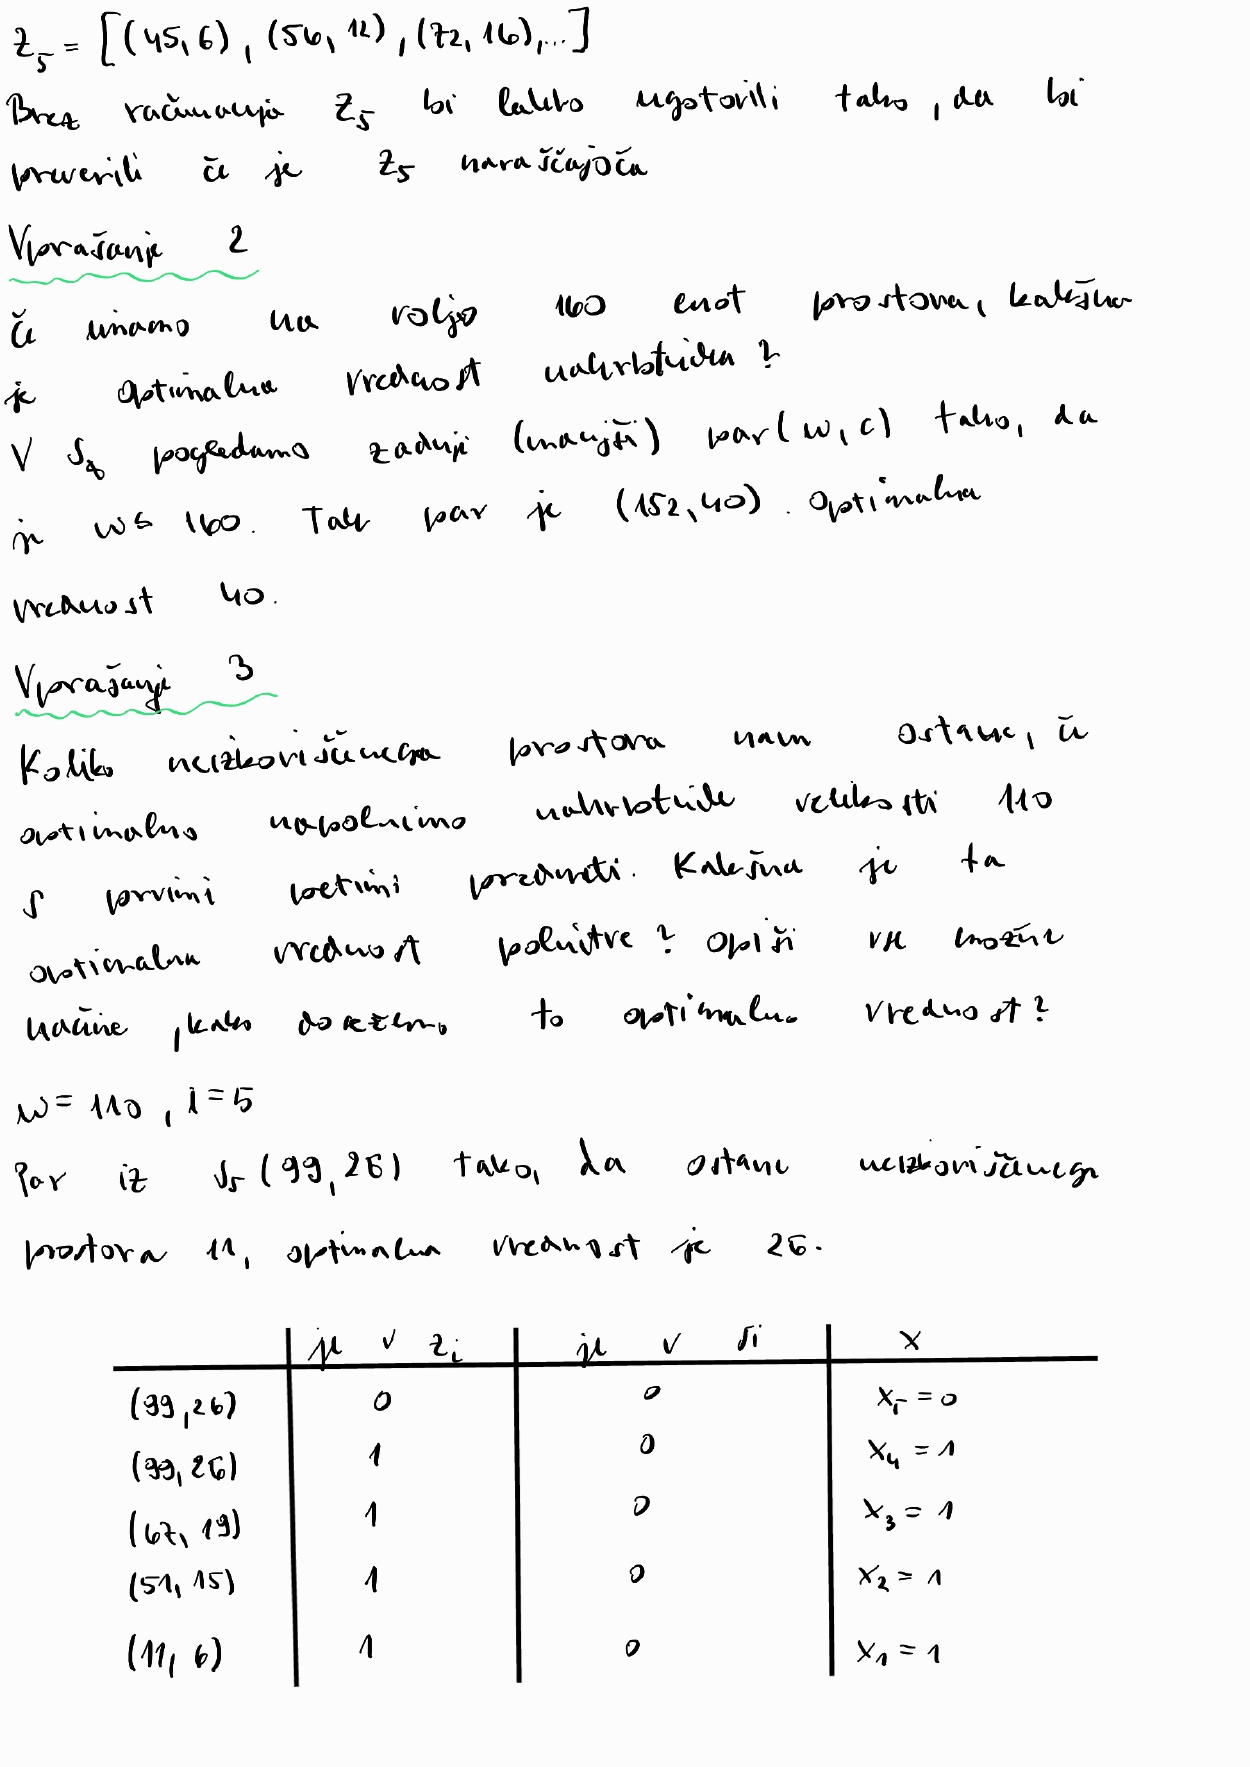 Z₅ = [(45,6), (56,12), (72,16),...]
Brez računanja Z₅ bi lahko ugotovili tako, da bi
preverili če je Z₅ naraščajoča
Vprašanje 2
Če imamo na voljo 160 enot prostora, kakšna
je optimalna vrednost nahrbtnika?
V S₈ pogledamo zadnji (manjši) par (w,c) tako, da
je w≤ 160. Tak par je (152,40). Optimalna
vrednost 40.
Vprašanje 3
Koliko neizkoriščenega prostora nam ostane, če
optimalno napolnimo nahrbtnik velikosti 110
s prvimi petimi predmeti. Kakšna je ta
optimalna vrednost polnitve? Opiši vse možne
načine, kako dosežemo to optimalno vrednost?
w= 110, i=5
Par iz S₅ (99,26) tako, da ostane neizkoriščenega
prostora 11, optimalna vrednost je 26.
je v Zᵢ je v Sᵢ x
(99,26) 0 0 x₅ = 0
(99,26) 1 0 x₄ = 1
(67,19) 1 0 x₃ = 1
(51,15) 1 0 x₂ = 1
(11,6) 1 0 x₁ = 1